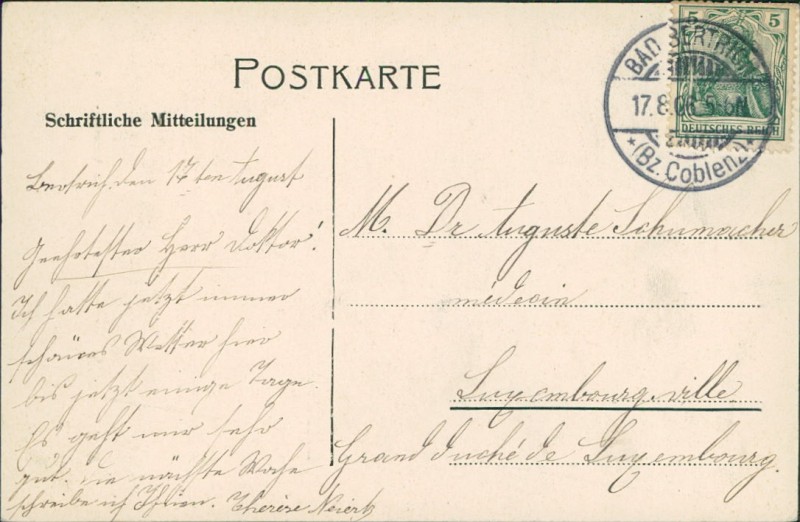 POSTKARTE
Schriftliche Mitteilungen
Bertrich, den 17ten August
Geehrtester Herr Doktor!
Ich hatte jetzt immer
schönes Wetter hier
bis jetzt einige Tage.
Es geht mir sehr
gut. die nächste Woche
schreibe ich Ihnen. Therèse
M. Dr Auguste Schumacher
médecin
Luxembourg-ville
Grand duché de Luxembourg.
5 5
DEUTSCHES REICH
BAD BERTRICH
17.8.06 5-6N
*(Bz.Coblenz)*